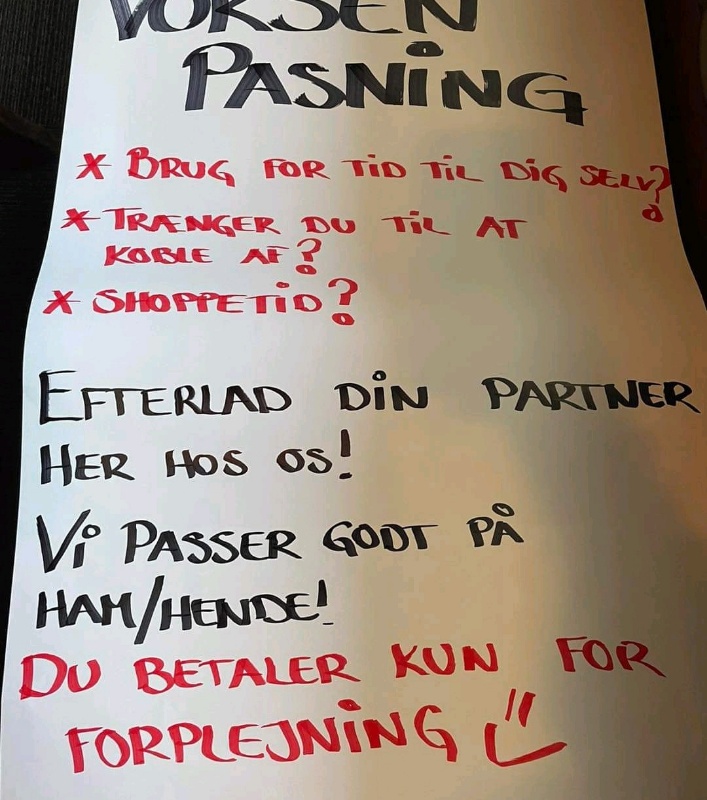 VOKSEN
PASNING
x BRUG FOR TID TIL DIG SELV?
x TRÆNGER DU TIL AT
KOBLE AF?
x SHOPPETID?
EFTERLAD DIN PARTNER
HER HOS OS!
VI PASSER GODT PÅ
HAM/HENDE!
DU BETALER KUN FOR
FORPLEJNING